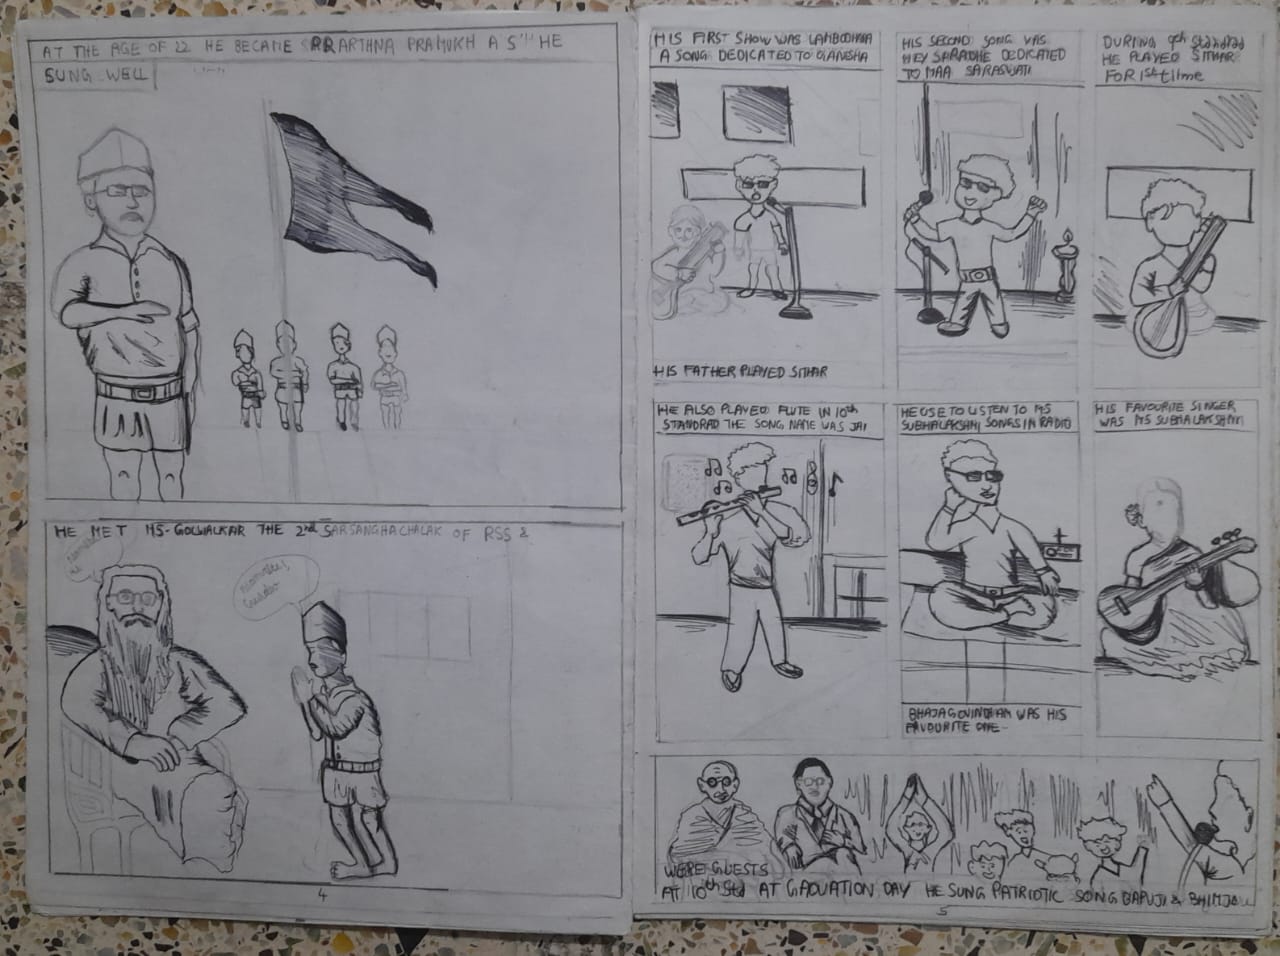 AT THE AGE OF 22 HE BECAME PRARTHNA PRAMUKH AS HE
SUNG WELL
HE MET MS-GOLWALKAR THE 2nd SARSANGHACHALAK OF RSS &
4
HIS FIRST SHOW WAS LAMBODHRA
A SONG DEDICATED TO GANESHA
HIS FATHER PLAYED SITHAR
HIS SECOND SONG WAS
HEY SARADHE DEDICATED
TO MAA SARASWATI
DURING 9th Standrad
HE PLAYED SITHAR
FOR 1st time
HE ALSO PLAYED FLUTE IN 10th
STANDRAD THE SONG NAME WAS JAI
HE USE TO LISTEN TO MS
SUBHALAKSHMI SONGS IN RADIO
BHAJAGOVINDHAM WAS HIS
FAVOURITE ONE-
HIS FAVOURITE SINGER
WAS MS SUBHALAKSHMI
WERE GUESTS
AT 10th Std AT GADUATION DAY HE SUNG PATRIOTIC SONG BAPUJI &
5